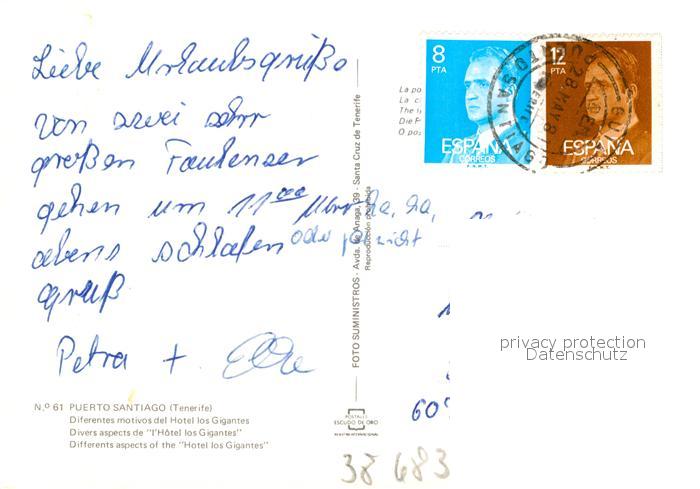 Liebe Urlaubsgrüße
von zwei sehr
großen Faulenzer
gehen um 11⁰⁰ Uhr ha, ha,
abens schlafen oder
gruß
Petra +
8
PTA
ESPAÑA
CORREOS
F.N.M.T.
12
PTA
ESPAÑA
CORREOS
F.N.M.T.
PUERTO SANTIAGO
28 MAY 8
La po
La c
The l
Die P
O po
FOTO SUMINISTROS - Avda. de Anaga, 39 - Santa Cruz de Tenerife
Reproducción prohibida
N.º 61 PUERTO SANTIAGO (Tenerife)
Diferentes motivos del Hotel los Gigantes
Divers aspects de "l'Hôtel los Gigantes"
Differents aspects of the "Hotel los Gigantes"
POSTALES
ESCUDO DE ORO
60
38 683
privacy protection
Datenschutz